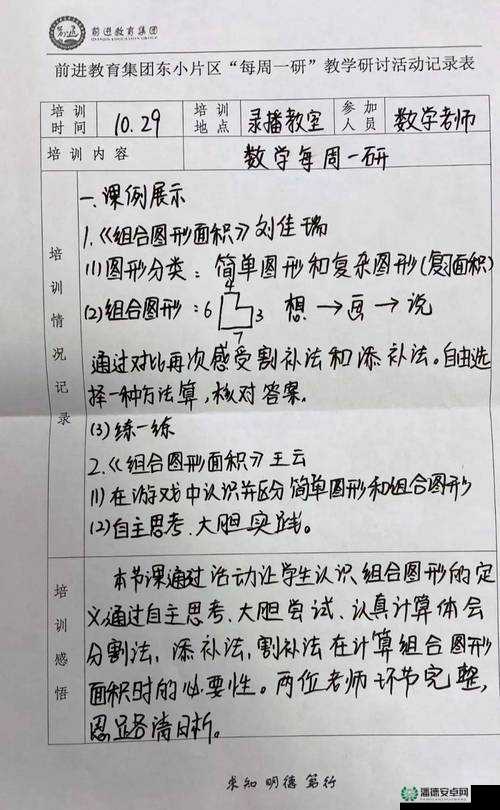 前进教育集团
前进教育集团东小片区“每周一研”教学研讨活动记录表
培训时间 10.29 培训地点 录播教室 参加人员 数学老师
培训内容 数学每周一研
培训情况记录
一.课例展示
1.《组合图形面积》刘佳瑞
(1)图形分类：简单图形和复杂图形(复习面积)
4
(2)组合图形：6 3 想→画→说
7
通过对比再次感受割补法和添补法。自由选
择一种方法算,核对答案.
(3)练一练
2.《组合图形面积》王云
(1)在游戏中认识并区分简单图形和组合图形
(2)自主思考、大胆实践。
培训感悟
本节课通过活动让学生认识组合图形的定
义通过自主思考、大胆尝试、认真计算体会
分割法、添补法、割补法在计算组合图形
面积时的必要性。两位老师环节完整,
思路清晰。
求知 明德 笃行
潘德安卓网